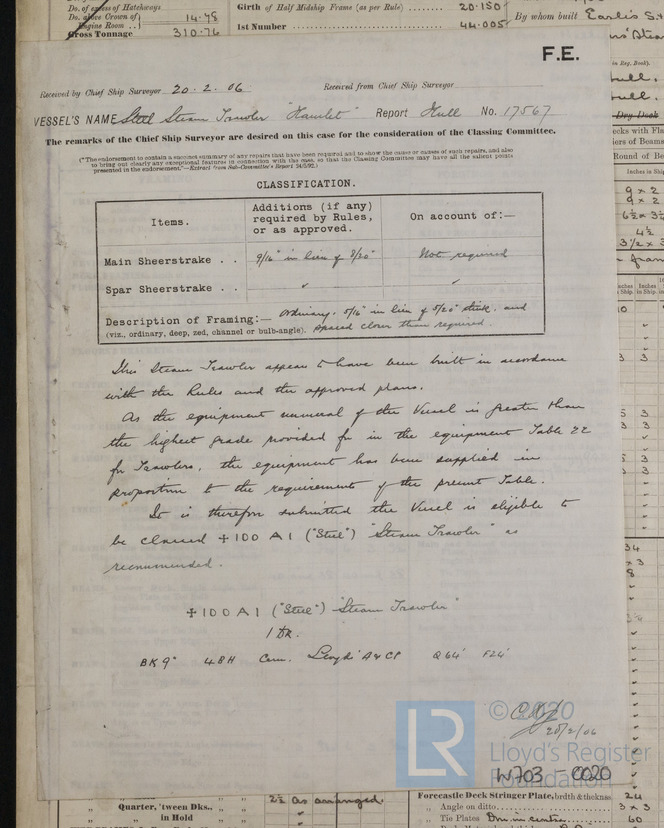 Do. of excess of Hatchways
Do. above Crown of Engine Room .. 14.78
Gross Tonnage 310.76
Girth of Half Midship Frame (as per Rule) 20.150
1st Number 44.005
By whom built Earle's S.
in Reg. Book).
Dry Dock
F.E.
Received by Chief Ship Surveyor 20.2.06 Received from Chief Ship Surveyor
VESSEL'S NAME Steel Steam Trawler "Hamlet" Report Hull No. 17567
The remarks of the Chief Ship Surveyor are desired on this case for the consideration of the Classing Committee.
("The endorsement to contain a succinct summary of any repairs that have been required and to show the cause or causes of such repairs, and also
to bring out clearly any exceptional features in connection with the case, so that the Classing Committee may have all the salient points
presented in the endorsement."—Extract from Sub-Committee's Report 24/5/92.)
CLASSIFICATION.
Items. Additions (if any) required by Rules, or as approved. On account of:—
Main Sheerstrake . . 9/16" in lieu of 8/20" Not required
Spar Sheerstrake . . " "
Description of Framing:— Ordinary. 5/16" in lieu of 5/20" thick. and
(viz., ordinary, deep, zed, channel or bulb-angle). spaced closer than required.
This Steam Trawler appears to have been built in accordance
with the Rules and the approved plans.
As the equipment numeral of the Vessel is greater than
the highest grade provided for in the equipment Table 22
for Trawlers, the equipment has been supplied in
proportion to the requirements of the present Table.
It is therefore submitted the Vessel is eligible to
be classed ✠100 A1 ("Steel") "Steam Trawler" as
recommended.
✠100 A1 ("Steel") "Steam Trawler"
1 DK.
BK 9" 4BH Cem. Lloyd's A & CP Q64' F24'
20/2/06
LR
© 2020
Lloyd's Register
Foundation
W703 - 0020
Quarter, 'tween Dks., " " 2½ as arranged.
in Hold
Forecastle Deck Stringer Plate, brdth & thickness 24
" Angle on ditto 3 x 3
" Tie Plates 60